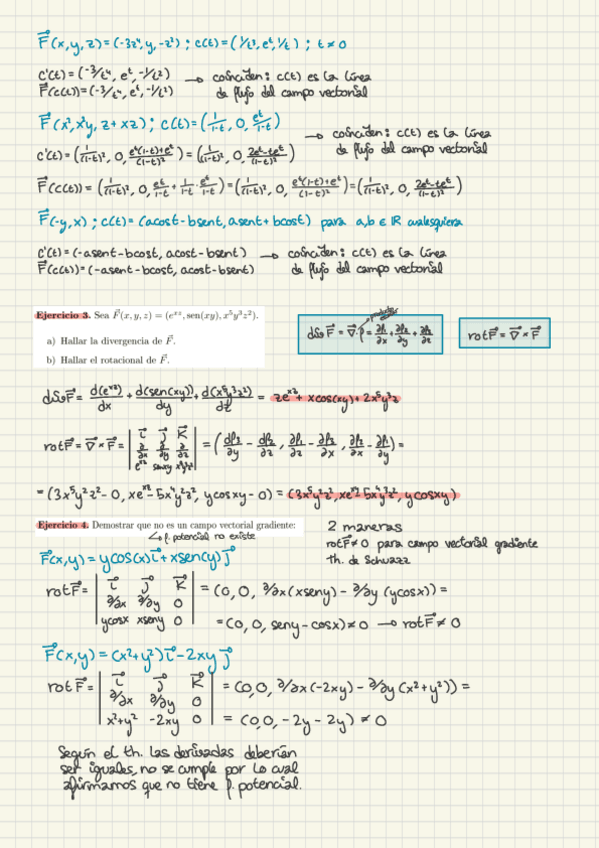 F⃗(x,y,z)=(-3z⁴,y,-z²) ; c(t)=(1/t³,eᵗ,1/t) ; t≠0
c'(t)=(-3/t⁴, eᵗ, -1/t²) → coinciden: c(t) es la línea
F⃗(c(t))=(-3/t⁴, eᵗ, -1/t²) de flujo del campo vectorial
F⃗(x²,x²y, z+xz) ; c(t)=(1/1-t, 0, eᵗ/1-t)
→ coinciden: c(t) es la línea
de flujo del campo vectorial
c'(t)=(1/(1-t)², 0, eᵗ(1-t)+eᵗ/(1-t)²)=(1/(1-t)², 0, 2eᵗ-teᵗ/(1-t)²)
F⃗(c(t))=(1/(1-t)², 0, eᵗ/1-t + 1/1-t · eᵗ/1-t)=(1/(1-t)², 0, eᵗ(1-t)+eᵗ/(1-t)²)=(1/(1-t)², 0, 2eᵗ-teᵗ/(1-t)²)
F⃗(-y,x) ; c(t)=(acost-bsent, asent+bcost) para a,b ∈ ℝ cualesquiera
c'(t)=(-asent-bcost, acost-bsent) → coinciden: c(t) es la línea
F⃗(c(t))=(-asent-bcost, acost-bsent) de flujo del campo vectorial
Ejercicio 3. Sea F⃗(x, y, z) = (eˣᶻ, sen(xy), x⁵y³z²).
a) Hallar la divergencia de F⃗.
b) Hallar el rotacional de F⃗.
div F⃗ = ∇⃗·F⃗ = ∂f₁/∂x + ∂f₂/∂y + ∂f₃/∂z
rotF⃗ = ∇⃗ × F⃗
divF⃗ = d(eˣᶻ)/dx + d(sen(xy))/dy + d(x⁵y³z²)/dz = zeˣᶻ + xcos(xy) + 2x⁵y³z
rotF⃗ = ∇⃗ × F⃗ = | i⃗ j⃗ k⃗ | ∂/∂x ∂/∂y ∂/∂z | eˣᶻ senxy x⁵y³z² | = (∂f₃/∂y - ∂f₂/∂z, ∂f₁/∂z - ∂f₃/∂x, ∂f₂/∂x - ∂f₁/∂y) =
= (3x⁵y²z² - 0, xeˣᶻ - 5x⁴y³z², ycosxy - 0) = (3x⁵y²z², xeˣᶻ - 5x⁴y³z², ycosxy)
Ejercicio 4. Demostrar que no es un campo vectorial gradiente:
↳ f. potencial no existe
2 maneras
rotF⃗≠0 para campo vectorial gradiente
th. de Schwazz
F⃗(x,y)=ycos(x)i⃗+xsen(y)j⃗
rotF⃗ = | i⃗ j⃗ k⃗ | ∂/∂x ∂/∂y 0 | ycosx xseny 0 | = (0, 0, ∂/∂x(xseny) - ∂/∂y (ycosx)) =
= (0, 0, seny - cosx) ≠ 0 → rotF⃗ ≠ 0
F⃗(x,y)=(x²+y²)i⃗-2xyj⃗
rotF⃗ = | i⃗ j⃗ k⃗ | ∂/∂x ∂/∂y 0 | x²+y² -2xy 0 | = (0,0, ∂/∂x(-2xy) - ∂/∂y(x²+y²)) =
= (0,0, -2y-2y) ≠ 0
Según el th. las derivadas deberían
ser iguales, no se cumple por lo cual
afirmamos que no tiene f. potencial.